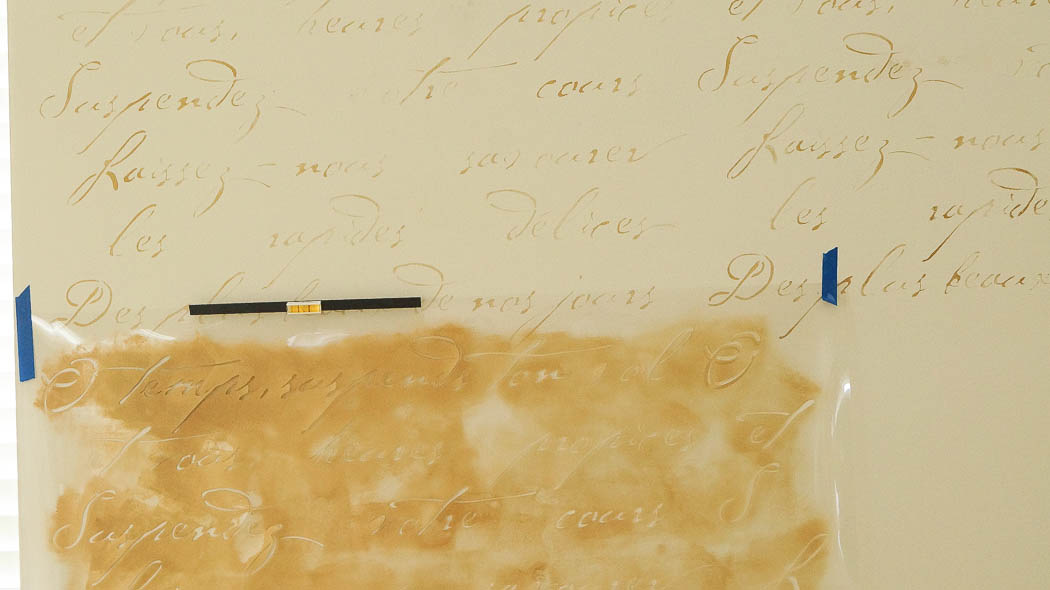 et vous, heures propices et vous, heures
Suspendez votre cours Suspendez
Laissez-nous savourer Laissez-nous
les rapides délices les rapides
Des plus beaux de nos jours Des plus beaux
O temps, suspends ton vol O
et vous, heures propices et
Suspendez votre cours S
savourer L